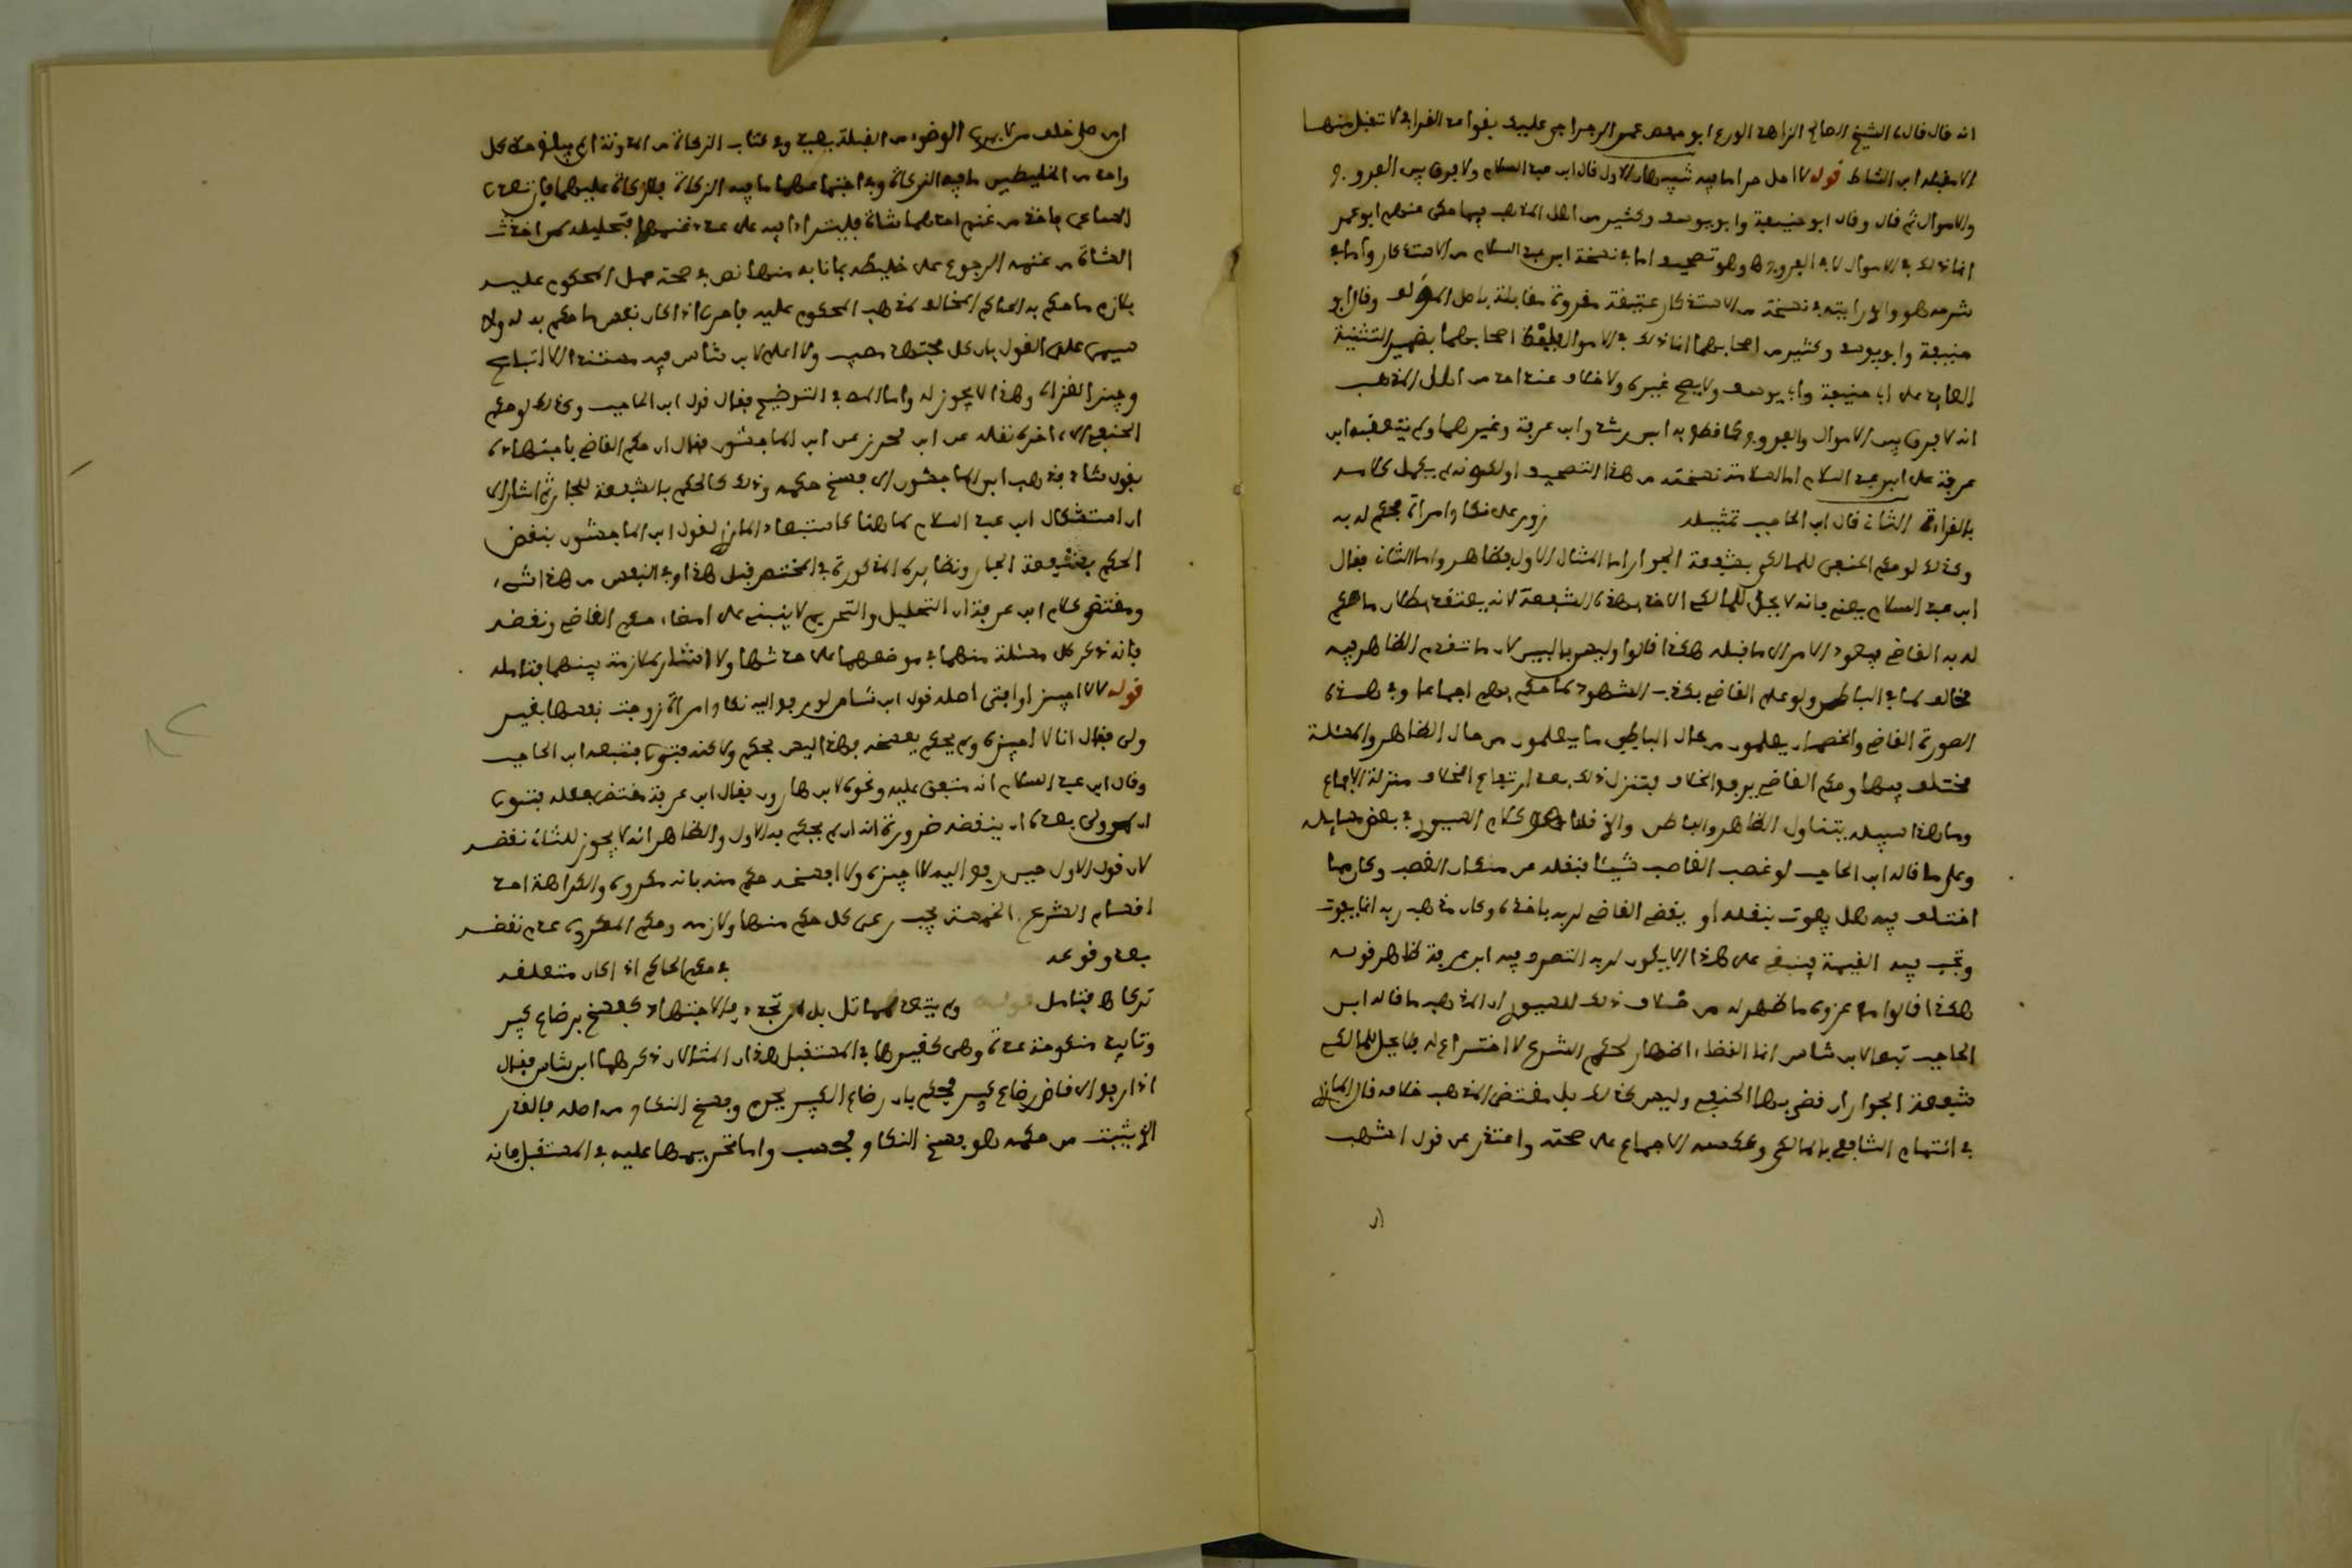 انه قال قال الشيخ الصالح الزاهد الورع ابو محمد عمر الرجراجي عليك بقواعد القرافي لا تقبل منها
الا ما قبله ابن الشاط قوله لا احل حراما فيه شيئان الاول قال ابن عبد السلام ولا فرق بين الفروج
والاموال ثم قال وقال ابو حنيفة وابو يوسف وكثير من اهل المذهب فيما حكى عنهم ابو عمر
انما ذلك في الاموال لا في الفروج وهو تصحيف اما في نسخة ابن عبد السلام من الاستذكار واما في
شرحه هو والذي رايته في نسخة من الاستذكار عتيقة مقروة مقابلة باصل المؤلف وقال ابو
حنيفة وابو يوسف وكثير من اصحابهما انما ذلك في الاموال بلفظ اصحابهما بضمير التثنية
العايد على ابي حنيفة وابي يوسف ولا يصح غيره ولا خلاف عند احد من اهل المذهب
انه لا فرق بين الاموال والفروج كما قطع به ابن رشد وابن عرفة وغيرهما ولم يتعقبه ابن
عرفة على ابن عبد السلام اما لسلامة نسخته من هذا التصحيف او لكونه لم يكمل كلامه
بالقراءة الثاني قال ابن الحاجب تمثيله زور على نكاح امراة فحكم له به
وكذلك لو حكم الحنفي للمالكي بشفعة الجوار اما المثال الاول فظاهر واما الثاني فقال
ابن عبد السلام يعني فانه لا يحل للمالكي الاخذ بهذه الشفعة لانه يعتقد بطلان ما حكم
له به القاضي فيعود الامر الى ما قبله هكذا قالوا وليس بالبين لان ما تقدم الظاهر فيه
مخالف لما في الباطن ولو علم القاضي بكذب الشهود لما حكم بهم اجماعا وفي هذه
الصورة القاضي والخصمان يعلمون من حال الباطن ما يعلمون من حال الظاهر والمسئلة
مختلف فيها وحكم القاضي يرفع الخلاف فيتنزل ذلك بعد ارتفاع الخلاف منزلة الاجماع
وما هذا سبيله يتناول الظاهر والباطن والذي قلناه هو كلام السيوري في بعض مسايله
وعلى ما قاله ابن الحاجب لو غصب الغاصب شيئا فنقله عن مكان الغصب وكان مما
اختلف فيه هل يفوت بنقله او يقضي القاضي لربه باخذه وكان مذهب ربه انما يفوت
وتجب فيه القيمة فينبغي على هذا الا يكون لربه التصرف فيه ابن عرفة ظاهر قوله
هكذا قالوا مع عزوه ما ظهر له من خلاف ذلك للسيوري ان المذهب ما قاله ابن
الحاجب تبعا لابن شاس انما القضاء اظهار لحكم الشرع لا اختراع له فلا يحل للمالكي
شفعة الجوار ان قضى بها الحنفي وليس كذلك بل مقتضى المذهب خلافه قال المازري
في ائتمام الشافعي بالمالكي وعكسه الاجماع على صحته واعتذر عن قول اشهب
ان
ان من صلى خلف من لا يرى الوضوء من القبلة يعيد وفي كتاب الزكاة من المدونة ان لم يبلغ حظ كل
واحد من الخليطين ما فيه الزكاة وفي اجتماعهما ما فيه الزكاة فلا زكاة عليهما فان تعدى
الساعي فاخذ من غنم احدهما شاة فليترادا فيه على عدد غنمهما فتحليله لمن اخذت
الشاة من غنمه الرجوع على خليطه بما نابه منها نص في صحة عمل المحكوم عليه
بلازم ما حكم به الحاكم المخالف لمذهب المحكوم عليه فاحرى اذا كان نفس ما حكم به له ولا
سيما على القول بان كل مجتهد مصيب ولا اعلم لابن شاس فيه مستندا الا اتباع
وجيز الغزالي وهذا لا يجوز له واما المص في التوضيح فقال قول ابن الحاجب وكذلك لو حكم
الحنفي الى اخره نقله عن ابن محرز عن ابن الماجشون فقال ان حكم القاضي باجتهاده
بقول شاذ فذهب ابن الماجشون الى فسخ حكمه وذلك كالحكم بالشفعة للجار ثم اشار الى
ان استشكال ابن عبد السلام لما هنا كاستبعاد المازري لقول ابن الماجشون بنقض
الحكم بشفعة الجار ونظايره المذكورة في المختصر قبل هذا وفي النفس من هذا شيء
ومقتضى كلام ابن عرفة ان التحليل والتحريم لا ينبني على امضاء حكم القاضي ونقضه
فانه ذكر كل مسئلة منهما في موضعهما على حدتها ولا اشار لملازمة بينهما فتامله
قوله لا لا اجيز او افتى اصله قول ابن شاس لو رفع اليه نكاح امراة زوجت نفسها بغير
ولي فقال انا لا اجيزه ولم يحكم بفسخه فهذا ليس بحكم ولكنه فتوى فتبعه ابن الحاجب
وقال ابن عبد السلام انه متفق عليه ونحوه لابن هارون فقال ابن عرفة مقتضى جعله فتوى
ان لمن ولي بعده ان ينقضه ضرورة انه لم يحكم به الاول والظاهر انه لا يجوز للثاني نقضه
لان قول الاول حين رفع اليه لا اجيزه ولا افسخه حكم منه بانه مكروه والكراهة احد
اقسام الشرع الخمسة يجب رعي كل حكم منها ولازمه وحكم المكروه عدم نقضه
بعد وقوعه في حكم الحاكم اذا كان متعلقه
تركا فتامل قوله ولم يتعد لمماثل بل ان تجدد فالاجتهاد كفسخ برضاع كبير
وتابيد منكوحة عدة وهي كغيرها في المستقبل هذان المثالان ذكرهما ابن شاس فقال
اذا رفع الى قاض رضاع كبير فحكم بان رضاع الكبير يحرم وفسخ النكاح من اصله فالقدر
الذي يثبت من حكمه هو فسخ النكاح فحسب واما تحريمها عليه في المستقبل فانه